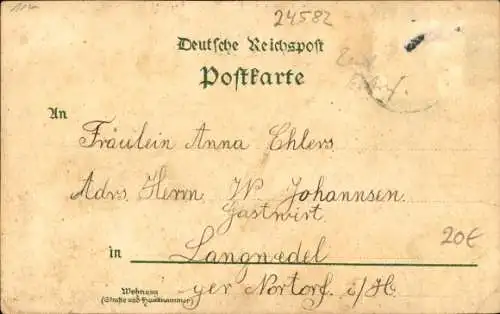 24582
Deutsche Reichspost
Postkarte
An
Fräulein Anna Ehlers
Adrs. Herrn W Johannsen
Gastwirt
20€
in Langwedel
per Nortorf i/H.
Wohnung
(Straße und Hausnummer)